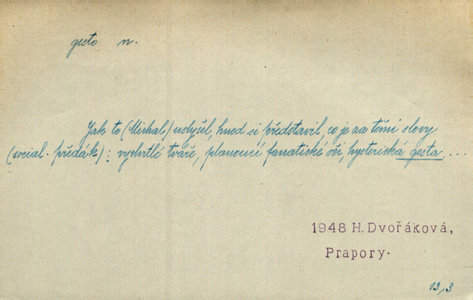 gesto n.
Jak to (Michal) uslyšel, hned si představil, co je za těmi slovy
(social. předák): vychrtlé tváře, planoucí fanatické oči, hysterická gesta ...
1948 H. Dvořáková,
Prapory.
13,3